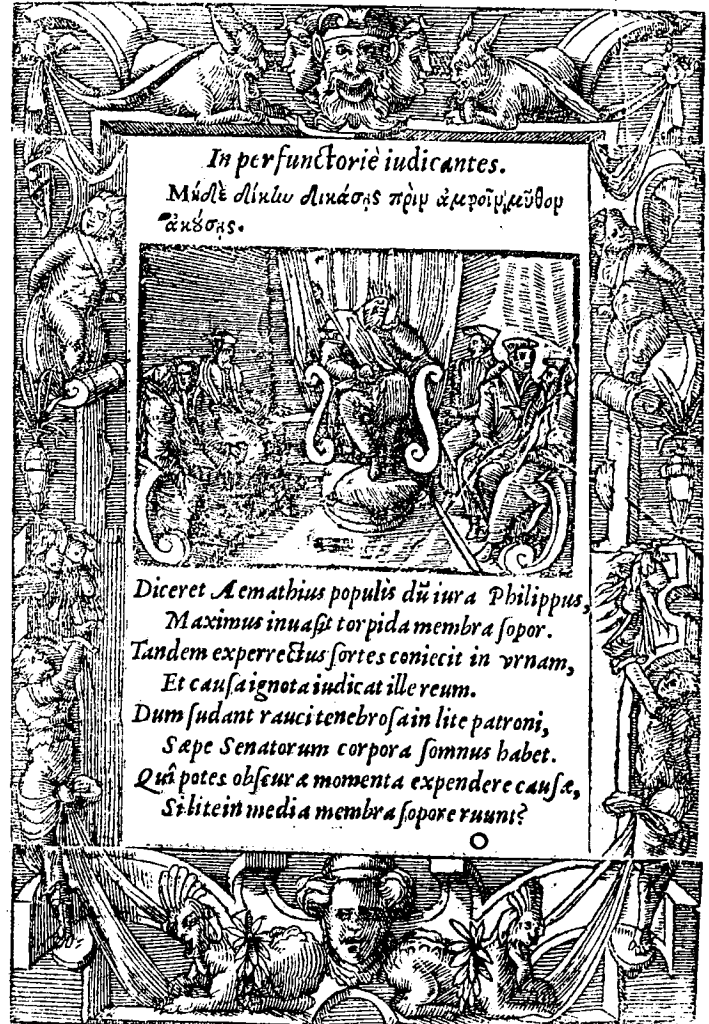 In perfunctoriè iudicantes.
Μηδὲ δίκην δικάσῃς πρὶν ἀμφοῖν μῦθον
ἀκούσῃς.
Diceret Aemathius populis dū iura Philippus,
Maximus inuasit torpida membra sopor.
Tandem experrectus sortes coniecit in vrnam,
Et causa ignota iudicat ille reum.
Dum sudant rauci tenebrosa in lite patroni,
Sæpe Senatorum corpora somnus habet.
Quî potes obscuræ momenta expendere causæ,
Si lite in media membra sopore ruunt?
O